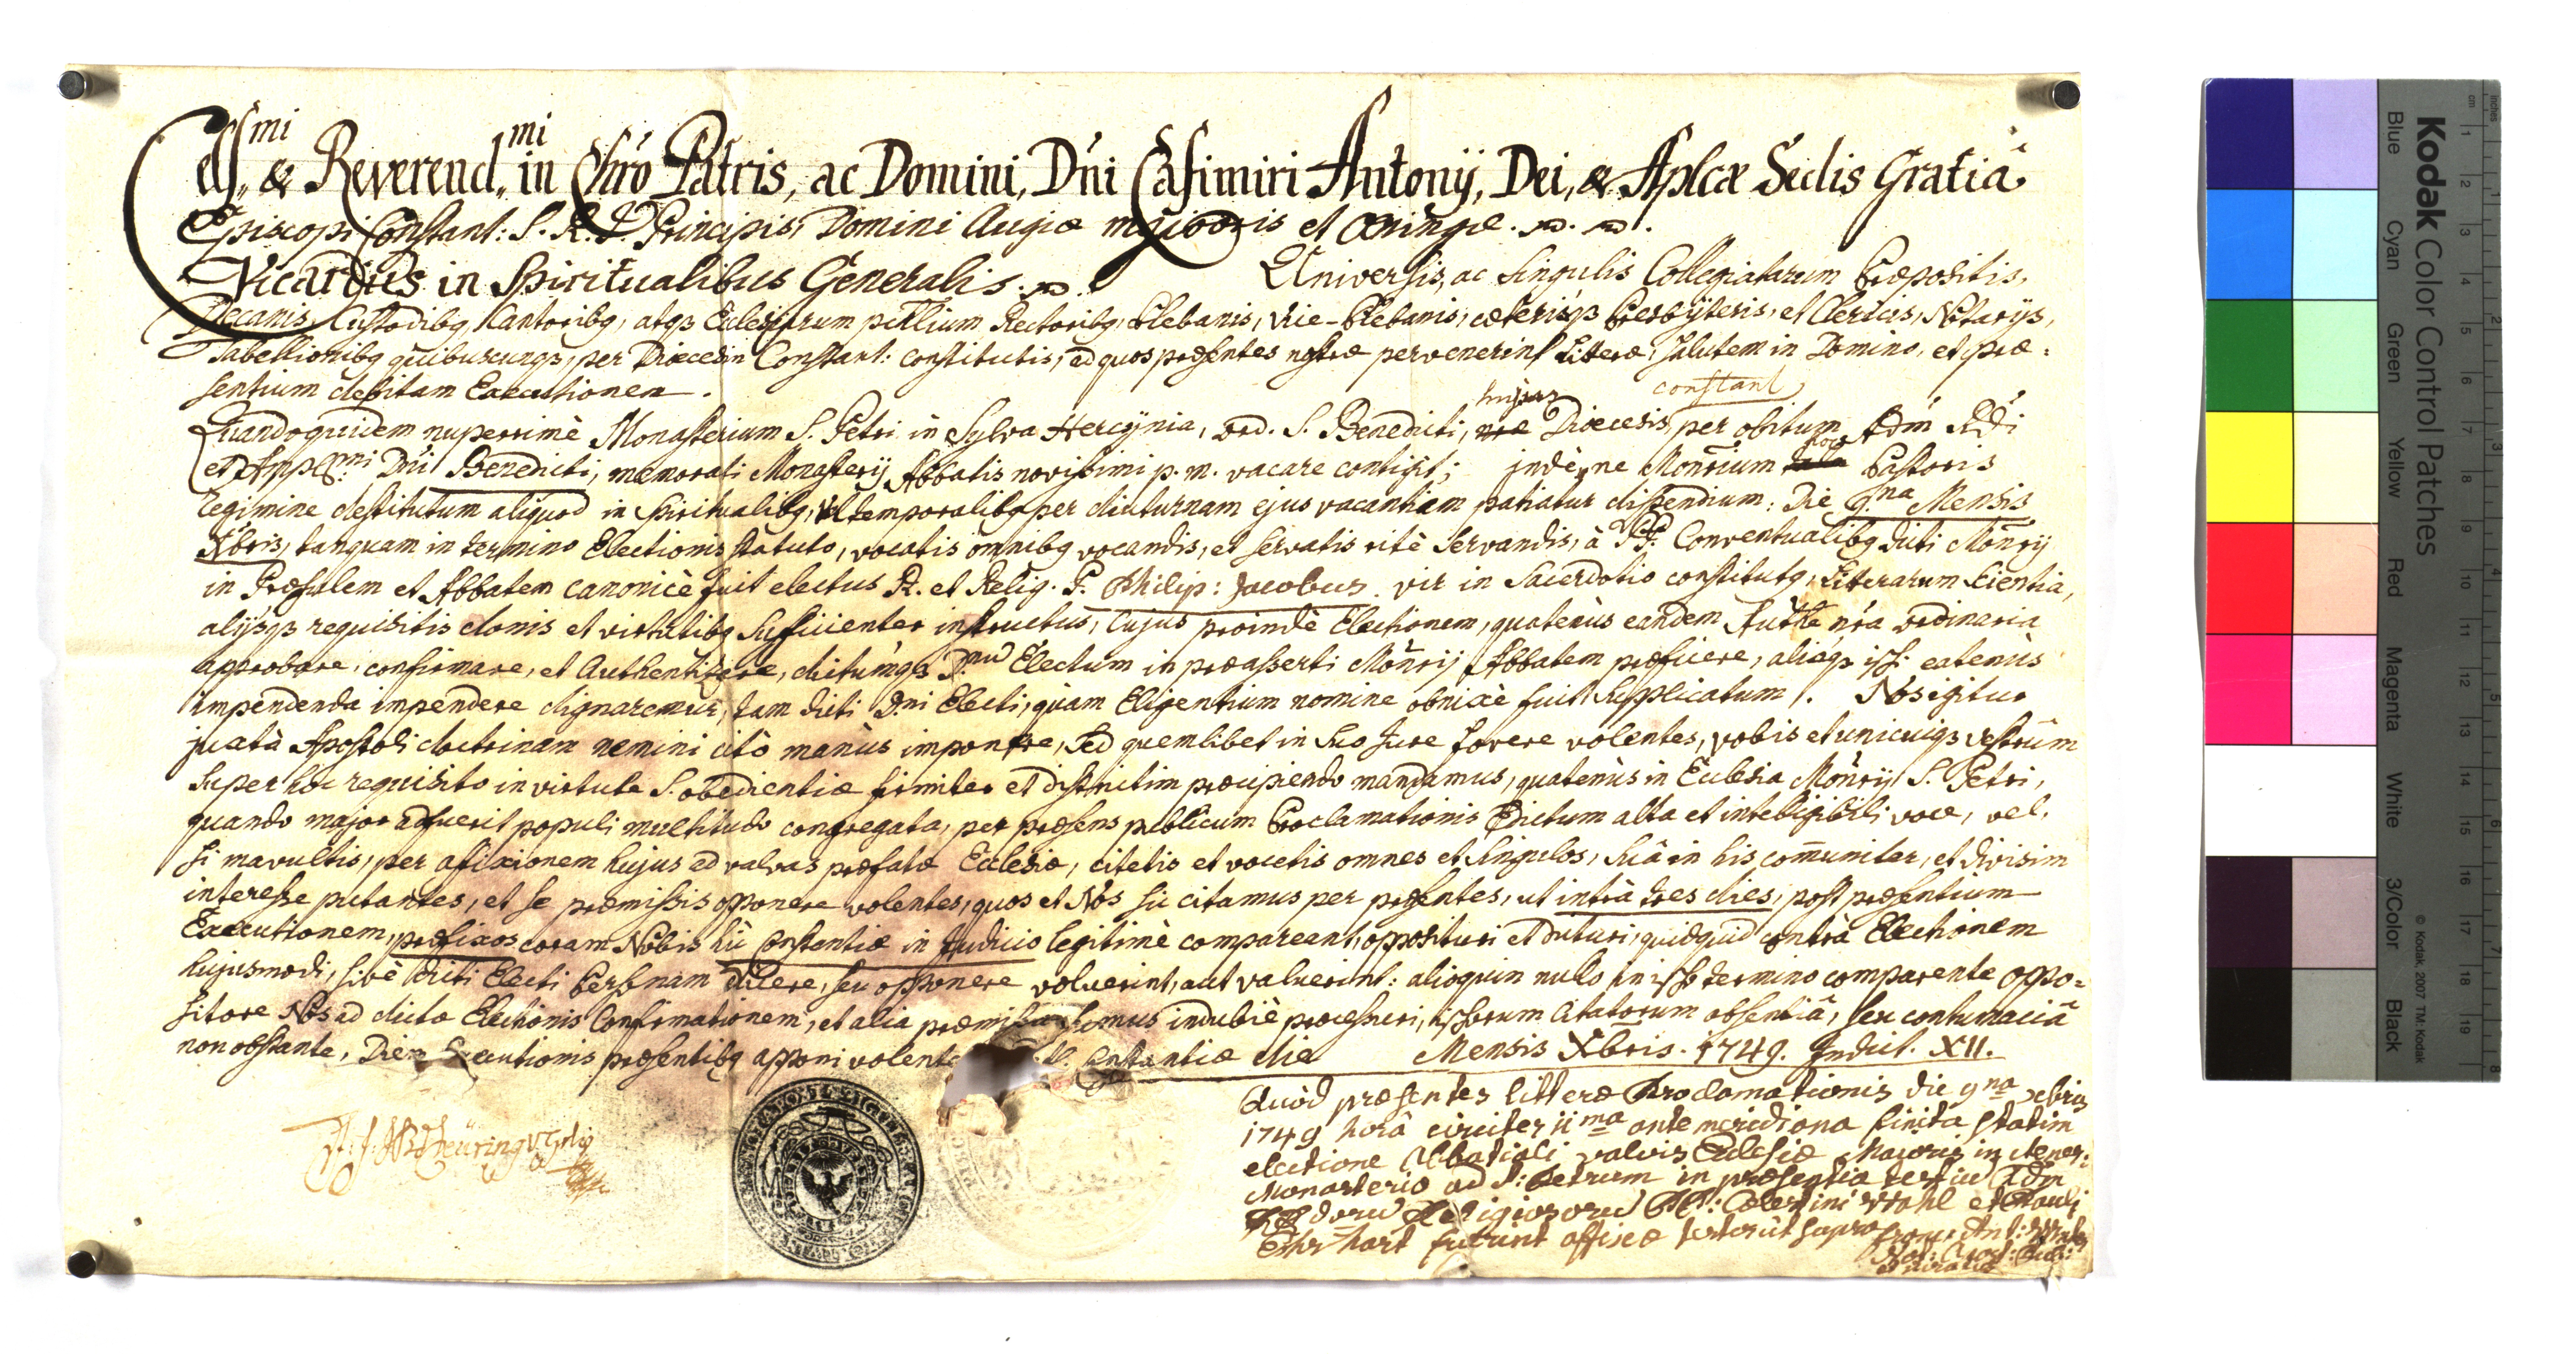 Cels.mi & Reverend.mi in Chro Patris, ac Domini, Dni Casimiri Antonÿ, Dei, & Aplcæ Sedis Gratiâ
Episcopi Constant: S. R. I. Principis, Domini Augiæ majoris et Oeningæ.
Vicarius in Spiritualibus Generalis. Universis, ac singulis Collegiatarum Præpositis,
Decanis, Custodibq, Cantoribq, atqs Ecclesiarum pchlium Rectoribq, Plebanis, Vice-Plebanis, cæterisqs Presbÿteris, et Clericis, Notarijs,
Tabellionibq quibuscunqs, per Dioecesin Constant: constitutis, ad quos præsentes nostræ pervenerint Litteræ, salutem in Domino, et præ=
sentium debitam Executionem.
hujus constant
Quandoquidem nuperrimè Monasterium S. Petri in Sylva Hercÿnia, ord. S. Benedicti, nræ Dioecesis per obitum Adm Rdi
et Amplmi Dni Benedicti, memorati Monasterij Abbatis novissimi p. m. vacare contigit; indè, ne Monrium Pastoris
regimine destitutum aliquod in spiritualibq, vel temporalibq per diuturnam ejus vacantiam patiatur dispendium: Die 9.na Mensis
Xbris, tanquam in termino Electionis statuto, vocatis omnibq vocandis, et servatis ritè servandis, à PP. Conventualibq dicti Monrij
in Præsulem et Abbatem canonicè fuit electus R. et Relig. P. Philip: Jacobus. vir in Sacerdotio constitutq, Literarum scientia,
alijsqs requisitis donis et virtutibq sufficienter instructus, cujus proindè Electionem, quatenùs eandem Authte nra ordinaria
approbare, confirmare, et Authentizare, dictumqs D.num Electum in præasserti Monrij Abbatem præficere, aliaqs ipsi eatenùs
impendenda impendere dignaremur, tam dicti D.ni Electi, quam Eligentium nomine obnixè fuit supplicatum. Nos igitur
juxtà Apostoli doctrinam nemini citò manùs imponere, sed quemlibet in suo Jure fovere volentes, vobis et unicuiqs vestrûm
super hoc requisito in virtute S. obedientiæ firmiter et districtim præcipiendo mandamus, quatenùs in Ecclesia Monrij S. Petri,
quando major adfuerit populi multitudo congregata, per præsens publicum Proclamationis Edictum alta et intelligibili voce, vel,
si mavultis, per afixionem hujus ad valvas præfatæ Ecclesiæ, citetis et vocetis omnes et singulos, suâ in his comuniter, et divisim
interesse putantes, et se præmissis opponere volentes, quos et Nos sic citamus per præsentes, ut intrà tres dies, post præsentium
Executionem, præfixos coram Nobis hìc Constantiæ in Judicio legitimè compareant, opposituri et dicturi, quidquid contrà Electionem
hujusmodi, sivè dicti Electi Personam dicere, seu opponere voluerint, aut valuerint: alioquin nullo in ipso termino comparente oppo=
sitore Nos ad dictæ Electionis Confirmationem, et alia præmissa simus indubiè processuri, ipsorum Citatorum absentiâ, seu contumaciâ
non obstante, Diem Executionis præsentibq apponi volentes. Constantiæ die Mensis Xbris. 1749. Indict. XII.
Quòd præsentes litteræ Proclamationis die 9na xbris
1749 horâ circiter 11ma antemeridiana finita statim
electione Abbatiali valvis Ecclesiæ Majoris in
Monasterio ad S: Petrum in præsentia
Religiosorum PP: Coelestini Wahl et Pauli
Ehrhart fuerint affixæ testor ut supra